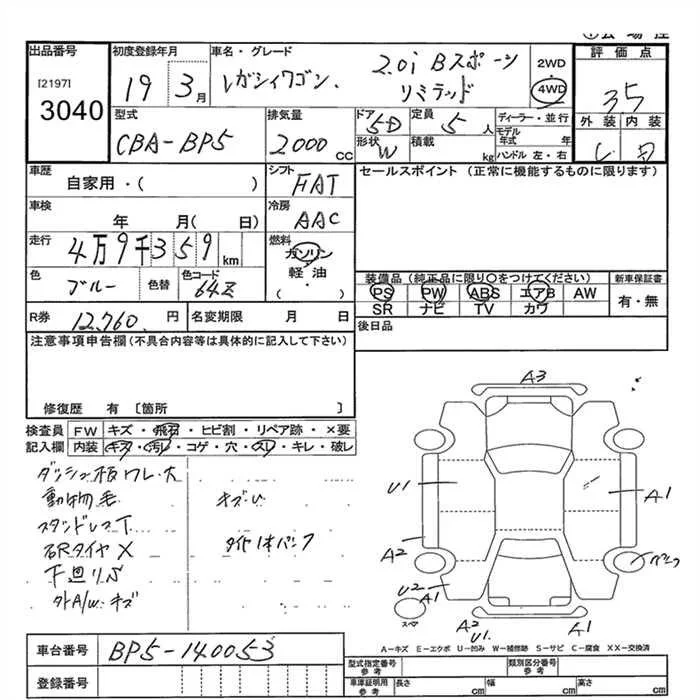 出品番号
I2197I
3040
初度登録年月
19 3月
車名・グレード
レガシィワゴン. 2.0i Bスポーツ
リミテッド
2WD
4WD
評価点
3.5
外装 内装
型式
CBA-BP5
排気量
2000 CC
ドア 5D
形状 W
定員 5 人
積載 kg
ディーラー・並行
モデル年式 年
ハンドル 左・右
車歴
自家用・( )
シフト
FAT
セールスポイント (正常に機能するものに限ります)
車検
年 月( 日)
冷房
AAC
走行
4万9千359 km
燃料
ガソリン
軽・油
・( )
色
ブルー
色替
色コード
64Z
装備品 (純正品に限り○をつけてください)
PS PW ABS エアB AW
SR ナビ TV カワ
新車保証書
有・無
R券 12,760. 円
名変期限 月 日
後日品
注意事項申告欄(不具合内容等は具体的に記入して下さい)
修復歴 有 〔箇所 〕
検査員
記入欄
FW キズ・飛石・ヒビ割・リペア跡・×要
内装 キズ・汚レ・コゲ・穴・スレ・キレ・破レ
ダッシュ板ワレ・大
動物毛
スタッドレスT
右Rタイヤ X
下廻りS
外A/W キズ
タイヤ1本パンク
A3
U1
A1
A2
パンク
U2
A1
スペア
A2
U1.
A1
A=キズ E=エクボ U=凹み W=補修跡 S=サビ C=腐食 XX=交換済
車台番号
BP5-140053
登録番号
型式指定番号
参考
類別区分番号
参考
車庫証明用
参考
長さ cm
幅 cm
高さ cm